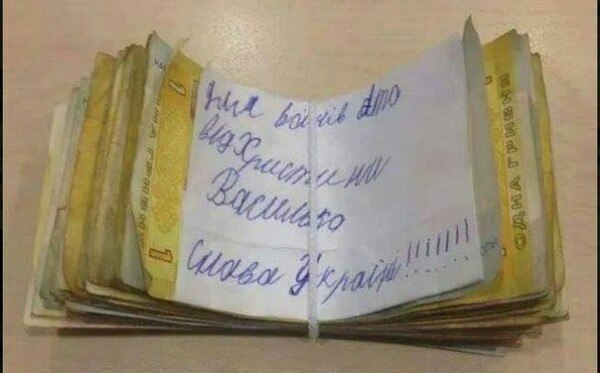 Для воїнів АТО
від Христини
Василько
Слава Україні!!!!!!!!
1
1
ОДНА ГРИВНЯ